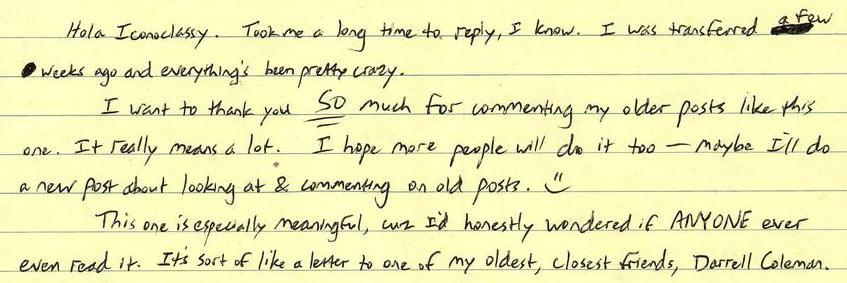 Hola Iconoclassy. Took me a long time to reply, I know. I was transferred a few
weeks ago and everything's been pretty crazy.
I want to thank you SO much for commenting my older posts like this
one. It really means a lot. I hope more people will do it too — maybe I'll do
a new post about looking at & commenting on old posts. :)
This one is especially meaningful, cuz I'd honestly wondered if ANYONE ever
even read it. It's sort of like a letter to one of my oldest, closest friends, Darrell Coleman.